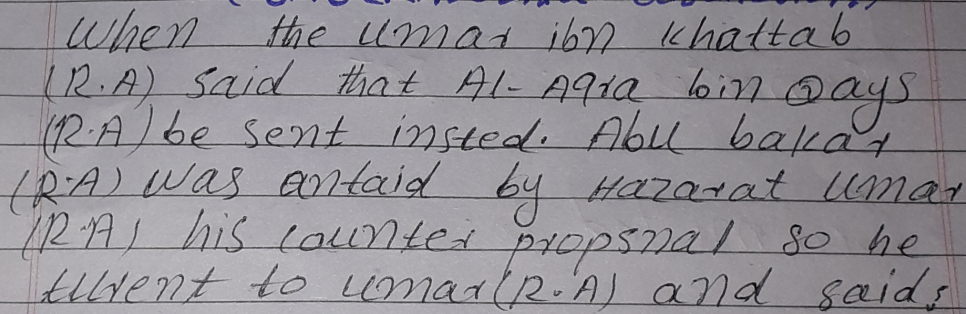 When the Umar ibn Khattab
(R.A) said that Al-Aqra bin Qays
(R.A) be sent insted. Abu bakar
(R.A) was antaid by Hazarat Umar
(R.A) his counter propsnal so he
turent to Umar (R.A) and said,